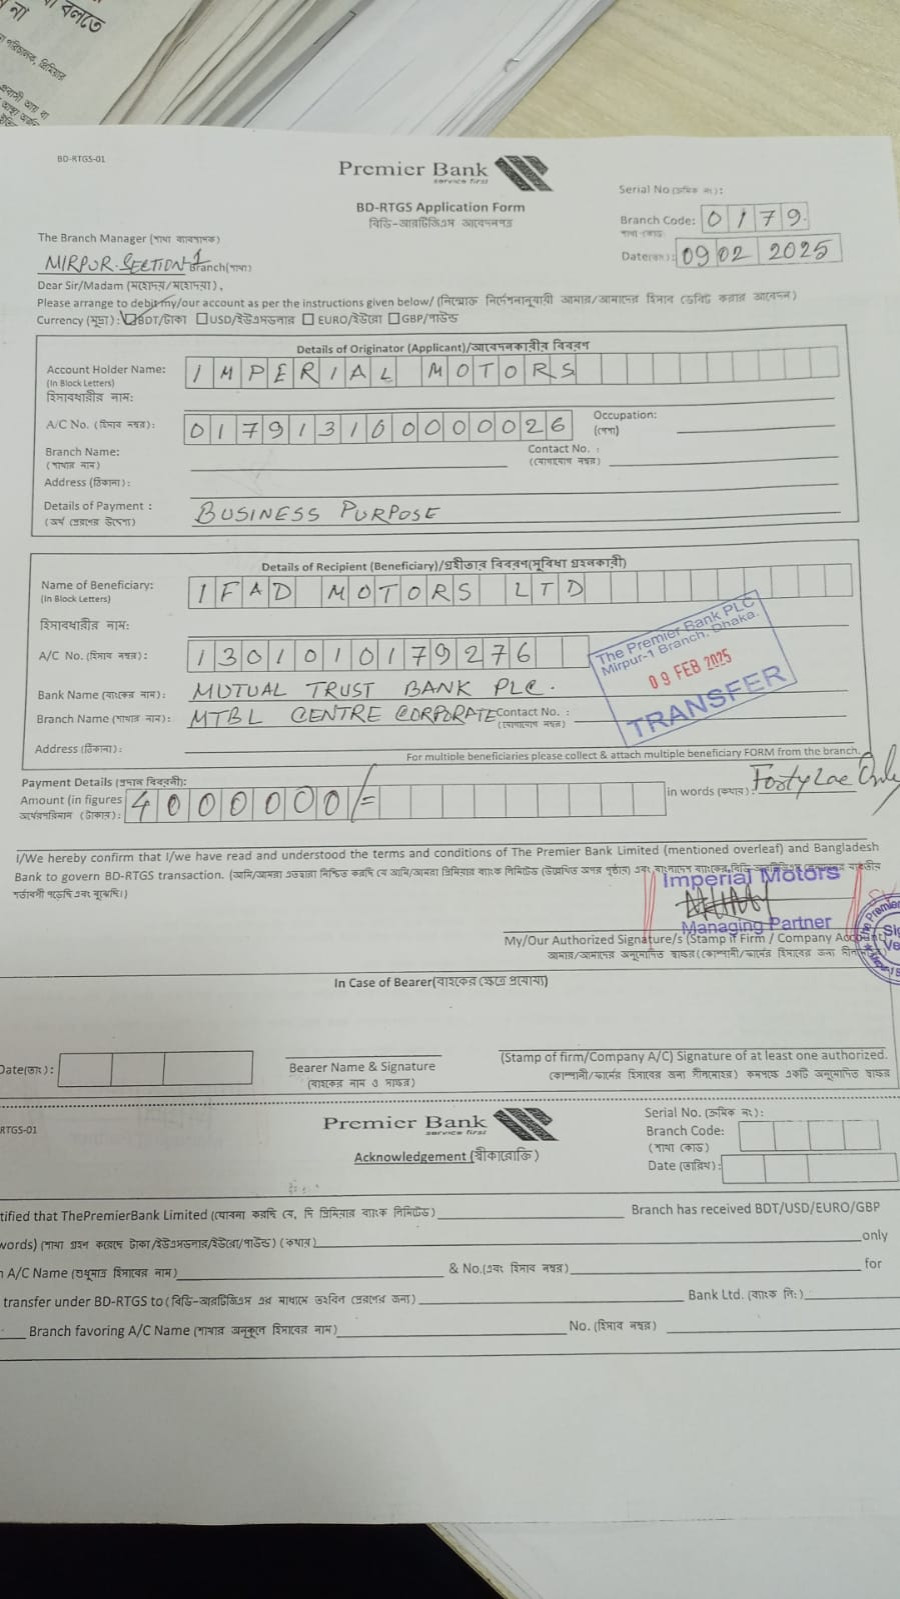 না
বলতে
BD-RTGS-01
Premier Bank
service first
BD-RTGS Application Form
বিডি-আরটিজিএস আবেদনপত্র
Serial No (ক্রমিক নং):
Branch Code: 0179
শাখা কোড:
Date(তাং): 09 02 2025
The Branch Manager (শাখা ব্যবস্থাপক)
MIRPUR-SECTION-1 Branch(শাখা)
Dear Sir/Madam (মহোদয়/মহোদয়া),
Please arrange to debit my/our account as per the instructions given below/ (নিম্নোক্ত নির্দেশনানুযায়ী আমার/আমাদের হিসাব ডেবিট করার আবেদন)
Currency (মুদ্রা): BDT/টাকা USD/ইউএসডলার EURO/ইউরো GBP/পাউন্ড
Details of Originator (Applicant)/আবেদনকারীর বিবরণ
Account Holder Name: IMPERIAL MOTORS
(In Block Letters)
হিসাবধারীর নাম:
A/C No. (হিসাব নম্বর): 017913100000026 Occupation:
(পেশা)
Branch Name: Contact No. :
(শাখার নাম) (যোগাযোগ নম্বর)
Address (ঠিকানা):
Details of Payment : BUSINESS PURPOSE
(অর্থ প্রেরণের উদ্দেশ্য)
Details of Recipient (Beneficiary)/গ্রহীতার বিবরন(সুবিধা গ্রহনকারী)
Name of Beneficiary: IFAD MOTORS LTD
(In Block Letters)
হিসাবধারীর নাম:
A/C No. (হিসাব নম্বর): 1301010179276
The Premier Bank PLC
Mirpur-1 Branch, Dhaka.
09 FEB 2025
TRANSFER
Bank Name (ব্যাংকের নাম): MUTUAL TRUST BANK PLC.
Branch Name (শাখার নাম): MTBL CENTRE CORPORATE Contact No. :
(যোগাযোগ নম্বর)
Address (ঠিকানা):
For multiple beneficiaries please collect & attach multiple beneficiary FORM from the branch.
Payment Details (প্রদান বিবরনী):
Amount (in figures 4000000/= in words (কথায়): Forty Lac Only
অর্থের পরিমান (টাকায়):
I/We hereby confirm that I/we have read and understood the terms and conditions of The Premier Bank Limited (mentioned overleaf) and Bangladesh
Bank to govern BD-RTGS transaction.
শর্তাবলী পড়েছি এবং বুঝেছি।)
Imperial Motors
Managing Partner
My/Our Authorized Signature/s (Stamp if Firm / Company Account)
আমার/আমাদের অনুমোদিত স্বাক্ষর (কোম্পানী/ফার্মের হিসাবের জন্য
In Case of Bearer(বাহকের ক্ষেত্রে প্রযোজ্য)
Date(তাং):
Bearer Name & Signature
(বাহকের নাম ও স্বাক্ষর)
(Stamp of firm/Company A/C) Signature of at least one authorized.
(কোম্পানী/ফার্মের হিসাবের জন্য সীলমোহর) কমপক্ষে একটি অনুমোদিত স্বাক্ষর
RTGS-01
Premier Bank
service first
Acknowledgement (স্বীকারোক্তি)
Serial No. (ক্রমিক নং):
Branch Code:
(শাখা কোড)
Date (তারিখ):
tified that ThePremierBank Limited (ঘোষনা করছি যে, দি প্রিমিয়ার ব্যাংক লিমিটেড) Branch has received BDT/USD/EURO/GBP
words) (শাখা গ্রহন করেছে টাকা/ইউএসডলার/ইউরো/পাউন্ড) (কথায়) only
A/C Name (শুধুমাত্র হিসাবের নাম) & No.(এবং হিসাব নম্বর) for
transfer under BD-RTGS to (বিডি-আরটিজিএস এর মাধ্যমে উৎবিল প্রেরণের জন্য) Bank Ltd. (ব্যাংক লি:)
Branch favoring A/C Name (শাখার অনুকূলে হিসাবের নাম) No. (হিসাব নম্বর)